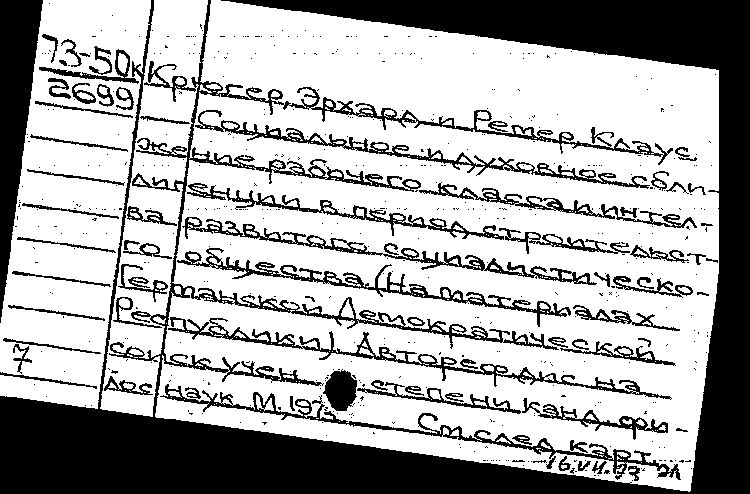 73-50к
2699
Крюгер, Эрхард и Ремер, Клаус
Социальное и духовное сбли-
жение рабочего класса и интел-
лигенции в период строительст-
ва развитого социалистическо-
го общества. (На материалах
Германской Демократической
Республики) Автореф дис на
соиск учен степени канд. фи-
лос наук. М., 1973
См. след карт.
7
16.VII.73